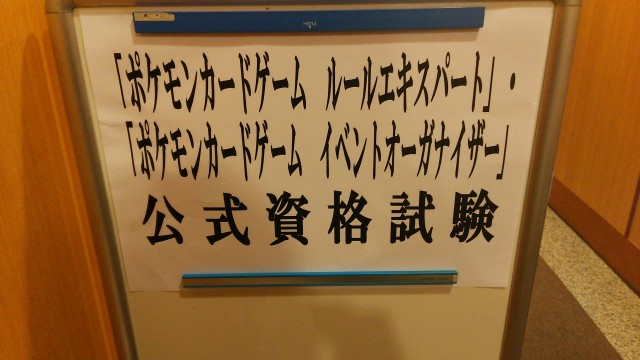 「ポケモンカードゲーム ルールエキスパート」・
「ポケモンカードゲーム イベントオーガナイザー」
公式資格試験